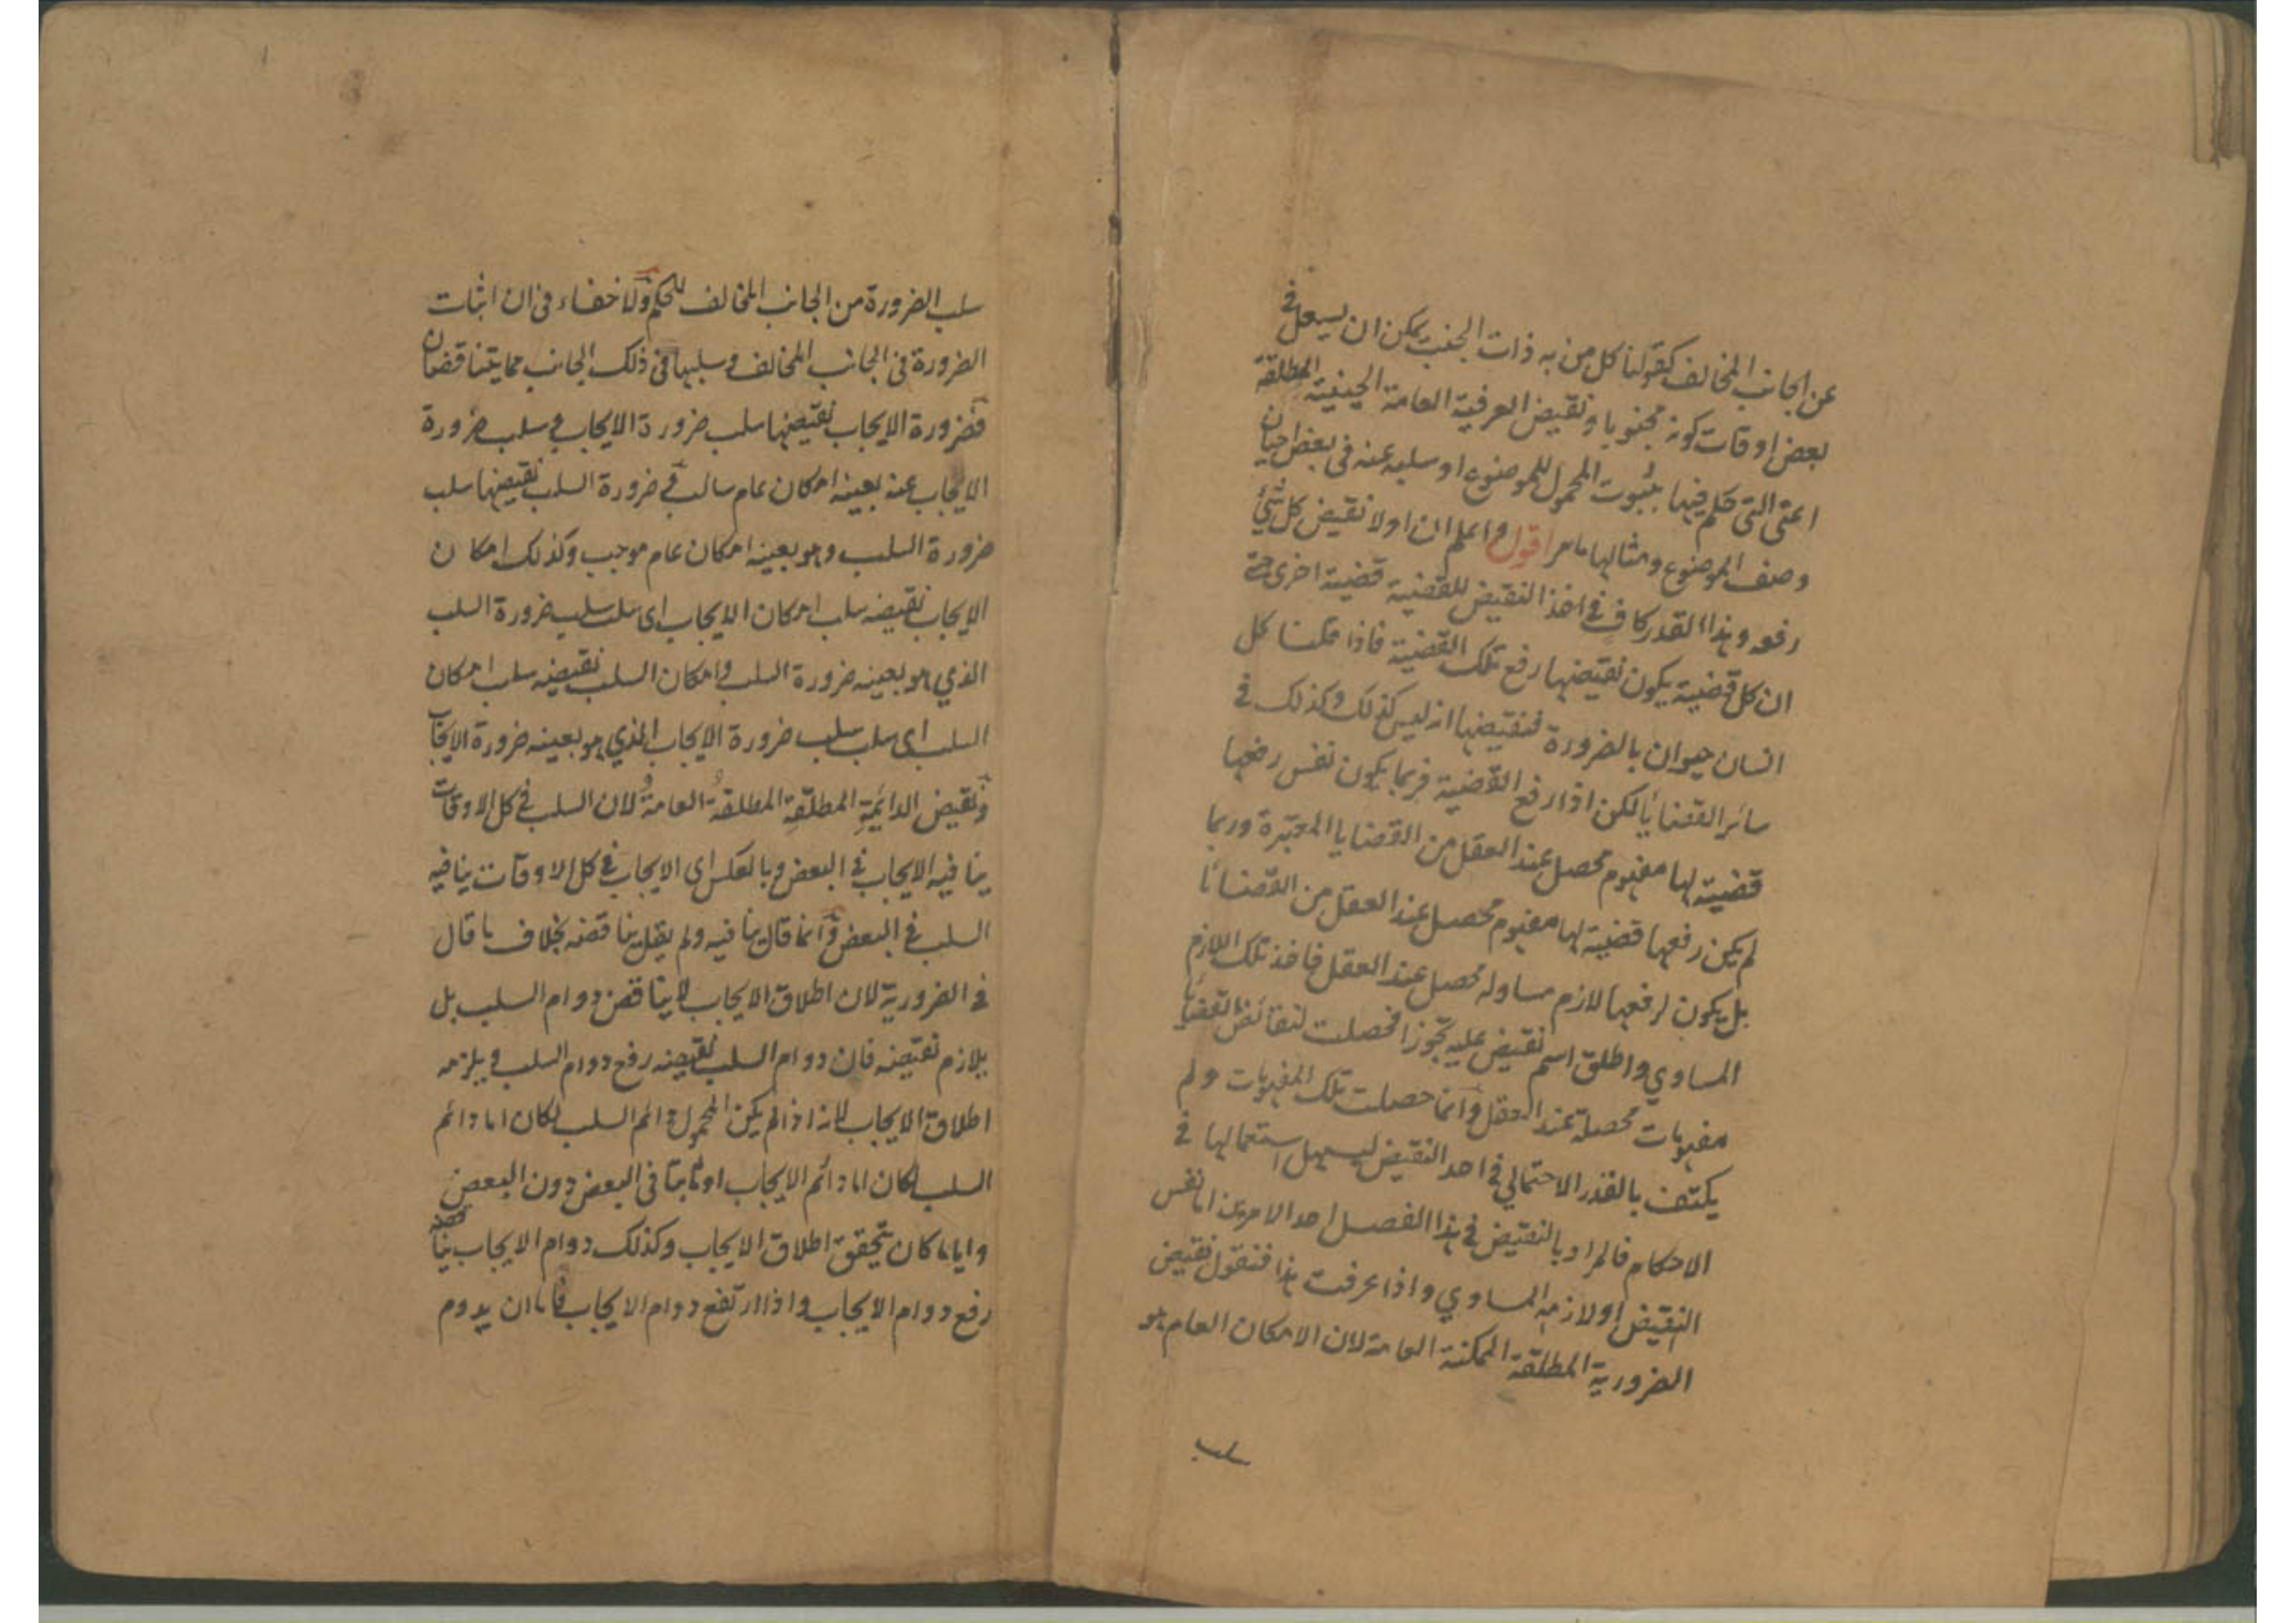 عن الجانب المخالف كقولنا كل من به ذات الجنب يمكن ان يسعل في
بعض اوقات كونه مجنوبا ونقيض العرفية العامة الحينية المطلقة
اعنى التى حكم فيها بثبوت المحمول للموضوع او سلبه عنه فى بعض احيان
وصف الموضوع ومثالها ما مر اقول واعلم ان اولا نقيض كل شئ
رفعه وهذا القدر كاف في اخذ النقيض للقضية قضية اخرى حتى
ان كل قضية يكون نقيضها رفع تلك القضية فاذا حكمنا كل
انسان حيوان بالضرورة فنقيضها انه ليس كذلك وكذلك في
سائر القضايا لكن اذا رفع القضية فربما يكون نفس رفعها
قضية لها مفهوم محصل عند العقل من القضايا المعتبرة وربما
لم يكن رفعها قضية لها مفهوم محصل عند العقل من القضايا
بل يكون لرفعها لازم مساو له محصل عند العقل فاخذ تلك اللازم
المساوي واطلق اسم نقيض عليه تجوزا فحصلت لنقائض القضايا
مفهومات محصلة عند العقل وانما حصلت تلك المفهومات ولم
يكتف بالقدر الاحتمالي في احد النقيض ليسهل استعمالها في
الاحكام فالمراد بالنقيض في هذا الفصل احد الامرين اما نفس
النقيض او لازمه المساوي واذا عرفت هذا فنقول نقيض
الضرورية المطلقة الممكنة العامة لان الامكان العام هو
سلب
سلب الضرورة من الجانب المخالف للحكم ولا خفاء فى ان اثبات
الضرورة فى الجانب المخالف وسلبها فى ذلك الجانب مما يتناقضان
فضرورة الايجاب نقيضها سلب ضرورة الايجاب و سلب ضرورة
الايجاب عنه بعينه امكان عام سالب و ضرورة السلب نقيضها سلب
ضرورة السلب وهو بعينه امكان عام موجب وكذلك امكان
الايجاب نقيضه سلب امكان الايجاب اى سلب سلب ضرورة السلب
الذي هو بعينه ضرورة السلب وامكان السلب نقيضه سلب امكان
السلب اى سلب سلب ضرورة الايجاب الذي هو بعينه ضرورة الايجاب
ونقيض الدائمة المطلقة المطلقة العامة لان السلب في كل الاوقات
ينافيه الايجاب في البعض وبالعكس اى الايجاب في كل الاوقات ينافيه
السلب في البعض وانما قال ينافيه ولم يقل يناقضه بخلاف ما قال
في الضرورية لان اطلاق الايجاب لا يناقض دوام السلب بل
يلازم نقيضه فان دوام السلب نقيضه رفع دوام السلب ويلزمه
اطلاق الايجاب لانه اذا لم يكن المحمول دائم السلب لكان اما دائم
السلب لكان اما دائم الايجاب او ثابتا فى البعض دون البعض
واياما كان يتحقق اطلاق الايجاب وكذلك دوام الايجاب يناقضه
رفع دوام الايجاب واذا ارتفع دوام الايجاب فاما ان يدوم